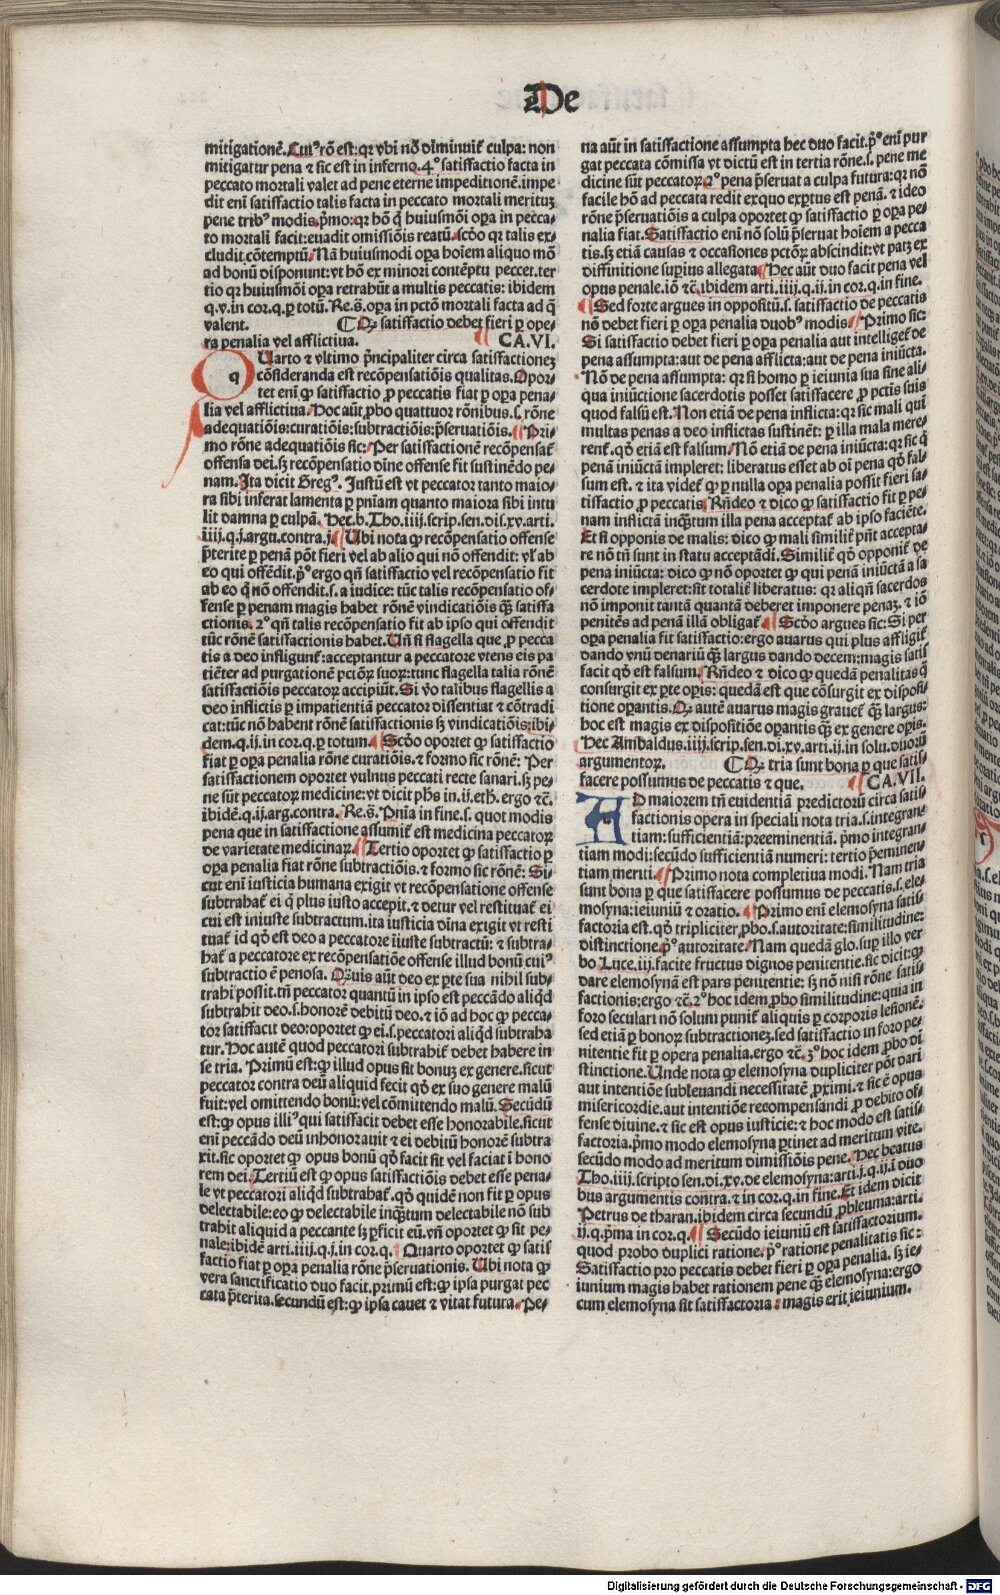 De
mitigationē. Cuiꝰ rō est: qꝛ vbi nō diminuit᷑ culpa: non
mitigatur pena ⁊ sic est in inferno. 4° satisfactio facta in
peccato mortali valet ad pene eterne impeditionē. impe
dit eni satisfactio talis facta in peccato mortali merituꝫ
pene tribꝰ modis. p̄mo: qꝛ hō q̇ huiusmōi oꝑa in pecca-
to mortali facit: euadit omissiōis reatū. scd̓o qꝛ talis ex-
cludit cōtemptū. Nā huiusmodi oꝑa hoīem aliquo mō
ad bonū disponunt: vt hō ex minori contēptu peccet. ter
tio qꝛ huiusmōi oꝑa retrahūt a multis peccatis: ibidem
q.v. in cor.q. ꝑ totū. Re.s̄. oꝑa in pctō mortali facta ad q̇
valent. ¶ Qꝙ satisfactio debet fieri ꝑ ope-
ra penalia vel afflictiua. CA.VI.
QUarto ⁊ vltimo p̄ncipaliter circa satisfactioneꝫ
q cōsideranda est recōpensatiōis qualitas. Opor-
tet eni ꝙ satisfactio ꝓ peccatis fiat ꝑ oꝑa pena-
lia vel afflictiua. Hoc aūt ꝓbo quattuor rōnibus.s. rōne
adequatiōis: curatiōis: subtractiōis: p̄seruatiōis. Pri-
mo rōne adequatiōis sic: Per satisfactionē recōpensat᷑
offensa dei. sꝫ recōpensatio diīne offense fit sustinēdo pe-
nam. Ita dicit Gregꝰ. Iustū est vt peccator tanto maio-
ra sibi inferat lamenta ꝑ pn̄iam quanto maiora sibi intu
lit damna ꝑ culpā. Hec.b. Tho.iiij.scrip.sen.dis.xv.arti.
iiij.q.j.argu.contra.j. Ubi nota ꝙ recōpensatio offense
p̄terite ꝑ penā pōt fieri vel ab alio qui nō offendit: vl̓ ab
eo qui offēdit. p̄ꝰ ergo qn̄ satisfactio vel recōpensatio fit
ab eo q̇ nō offendit.s. a iudice: tūc talis recōpensatio of-
fense ꝑ penam magis habet rōnē vindicatiōis q̄ꝫ satisfa
ctionis. 2° qn̄ talis recōpensatio fit ab ipso qui offendit
tūc rōnē satisfactionis habet. Uñ si flagella que ꝓ pecca
tis a deo infligunt᷑: acceptantur a peccatore vtens eis pa
tiēter ad purgationē pctōꝝ suoꝝ: tunc flagella talia rōnē
satisfactiōis peccatoꝝ accipiūt. Si vo talibus flagellis a
deo inflictis ꝑ impatientiā peccator dissentiat ⁊ cōtradi
cat: tūc nō habent rōnē satisfactionis sꝫ vindicatiōis: ibi-
dem.q.ij. in cor.q. ꝑ totum. Scd̓o oportet ꝙ satisfactio
fiat ꝑ oꝑa penalia rōne curatiōis. ⁊ formo sic rōnē: Per
satisfactionem oportet vulnus peccati recte sanari. sꝫ pe-
ne sūt peccatoꝝ medicine: vt dicit phs in.ij.eth. ergo ⁊c̄.
ibidē.q.ij.arg.contra. Re.s̄. Pn̄ia in fine.s. quot modis
pena que in satisfactione assumit᷑ est medicina peccatoꝝ
de varietate medicinaꝝ. Tertio oportet ꝙ satisfactio ꝑ
oꝑa penalia fiat rōne subtractiōis. ⁊ formo sic rōnē: Si-
cut eni iusticia humana exigit vt recōpensatione offense
subtrahat᷑ ei q̇ plus iusto accepit. ⁊ detur vel restituat᷑ ei
cui est iniuste subtractum. ita iusticia diīna exigit vt resti
tuat᷑ id qd̓ est deo a peccatore iīuste subtractū: ⁊ subtra-
hat᷑ a peccatore ex recōpensatiōe offense illud bonū cuiꝰ
subtractio ē penosa. Qꝛuis aūt deo ex ꝑte sua nihil sub-
trahi possit. tn̄ peccator quantū in ipso est peccādo aliqd̓
subtrahit deo.s. honorē debitū deo. ⁊ iō ad hoc ꝙ pecca-
tor satisfacit deo: oportet ꝙ ei.s. peccatori aliqd̓ subtraha
tur. Hoc autē quod peccatori subtrahit᷑ debet habere in
se tria. Primū est: ꝙ illud opus sit bonuꝫ ex genere. sicut
peccator contra deū aliquid fecit qd̓ ex suo genere malū
fuit: vel omittendo bonū: vel cōmittendo malū. Secūdū
est: ꝙ opus illiꝰ qui satisfacit debet esse honorabile. sicut
eni peccādo deū inhonorauit ⁊ ei debitū honorē subtra
xit. sic oportet ꝙ opus bonū qd̓ facit sit vel faciat i hono
rem dei. Tertiū est ꝙ opus satisfactiōis debet esse pena-
le vt peccatori aliqd̓ subtrahat᷑. qd̓ quidē non fit ꝑ opus
delectabile: eo ꝙ delectabile inq̄tum delectabile nō sub
trahit aliquid a peccante sꝫ ꝑficit eū. vn̄ oportet ꝙ sit pe-
nale: ibidē arti.iiij.q.j. in cor.q. Quarto oportet ꝙ satis
factio fiat ꝑ oꝑa penalia rōne p̄seruationis. Ubi nota ꝙ
vera sanctificatio duo facit. primū est: ꝙ ipsa purgat pec
cata p̄terita. secundū est: ꝙ ipsa cauet ⁊ vitat futura. Pe-
na aūt in satisfactione assumpta hec duo facit. p̄ꝰ enī pur
gat peccata cōmissa vt dictū est in tertia rōne.s. pene me
dicine sūt peccatoꝝ. 2° pena p̄seruat a culpa futura: qꝛ nō
facile hō ad peccata redit exquo exꝑtus est penā. ⁊ ideo
rōne p̄seruatiōis a culpa oportet ꝙ satisfactio ꝑ oꝑa pe-
nalia fiat. Satisfactio eni nō solū p̄seruat hoīem a pecca
tis. sꝫ etiā causas ⁊ occasiones pctōꝝ abscindit: vt patꝫ ex
diffinitione suꝑius allegata. Hec aūt duo facit pena vel
opus penale. iō ⁊c̄. ibidem arti.iiij.q.ij. in cor.q. in fine.
Sed forte argues in oppositū.s. satisfactio de peccatis
nō debet fieri ꝑ oꝑa penalia duobꝰ modis. Primo sic:
Si satisfactio debet fieri ꝑ oꝑa penalia aut intelliget᷑ de
pena assumpta: aut de pena afflicta: aut de pena iniūcta.
Nō de pena assumpta: qꝛ si homo ꝑ ieiunia sua sine ali-
qua iniūctione sacerdotis posset satisfacere ꝓ pctis suis
quod falsū est. Non etiā de pena inflicta: qꝛ sic mali qui
multas penas a deo inflictas sustinēt: ꝑ illa mala mere-
rent᷑. qd̓ etiā est falsum. Nō etiā de pena iniūcta: qꝛ sic q̇
penā iniūctā impleret: liberatus esset ab oī pena qd̓ fal-
sum est. ⁊ ita videt᷑ ꝙ ꝑ nulla oꝑa penalia possit fieri sa-
tisfactio ꝓ peccatis. Rn̄deo ⁊ dico ꝙ satisfactio fit ꝑ pe-
nam inflictā inq̄ꝫtum illa pena acceptat᷑ ab ipso faciēte.
Et si opponis de malis: dico ꝙ mali similit᷑ pn̄t accepta-
re nō tn̄ sunt in statu acceptādi. Similit᷑ qd̓ opponit᷑ de
pena iniūcta: dico ꝙ nō oportet ꝙ qui penā iniūctā a sa
cerdote impleret: sit totalit᷑ liberatus: qꝛ aliqn̄ sacerdos
nō imponit tantā quantā deberet imponere penaꝫ. ⁊ iō
penitēs ad penā illā obligat᷑. Scd̓o argues sic: Si per
oꝑa penalia fit satisfactio: ergo auarus qui plus affligit᷑
dando vnū denariū q̄ꝫ largus dando decem: magis satis
facit qd̓ est falsum. Rn̄deo ⁊ dico ꝙ quedā penalitas q̄
consurgit ex ꝑte oꝑis: quedā est que cōsurgit ex disposi-
tione oꝑantis. Qꝙ autē auarus magis grauet᷑ q̄ꝫ largus:
hoc est magis ex dispositiōe oꝑantis q̄ꝫ ex genere oꝑis.
Hec Anibaldus.iiij.scrip.sen.di.xv.arti.ij. in solu. duorū
argumentoꝝ. ¶ Qꝙ tria sunt bona ꝑ que satis-
facere possumus de peccatis ⁊ que. CA.VII.
AD maiorem tn̄ euidentiā predictorū circa satis-
factionis opera in speciali nota tria.s. integran-
tiam: sufficientiā: preeminentiā. p̄mo integran-
tiam modi: secūdo sufficientiā numeri: tertio p̄eminen-
tiam meriti. Primo nota completiua modi. Nam tria
sunt bona ꝑ que satisfacere possumus de peccatis.s. ele-
mosyna: ieiuniū ⁊ oratio. Primo eni elemosyna satis-
factoria est. qd̓ tripliciter ꝓbo.s. autoritate: similitudine:
distinctione. p̄ꝰ autoritate. Nam quedā glo. suꝑ illo ver
bo Luce.iij. facite fructus dignos penitentie. sic dicit: ꝙ
dare elemosynā est pars penitentie: sꝫ nō nisi rōne satis-
factionis: ergo ⁊c̄. 2° hoc idem ꝓbo similitudine: quia in
foro seculari nō solum punit᷑ aliquis ꝑ corporis lesionē.
sed etiā ꝑ bonoꝝ subtractioneꝫ. sed satisfactio in foro pe-
nitentie fit ꝑ opera penalia. ergo ⁊c̄. 3° hoc idem ꝓbo di
stinctione. Unde nota ꝙ elemosyna dupliciter pōt dari
aut intentiōe subleuandi necessitatē ꝓximi. ⁊ sic ē opus
misericordie. aut intentiōe recompensandi ꝓ debito of-
fense diuine. ⁊ sic est opus iusticie: ⁊ hoc modo est satis-
factoria. p̄mo modo elemosyna ꝑtinet ad meritum vite.
secūdo modo ad meritum dimissiōis pene. Hec beatus
Tho.iiij.scripto sen.di.xv.de elemosyna: arti.j.q.ij.ī duo
bus argumentis contra. ⁊ in cor.q. in fine. Et idem dicit
Petrus de tharan. ibidem circa secundū ꝓbleuma: arti.
ij.q.p̄ma in cor.q. Secūdo ieiuniū est satisfactorium.
quod probo duplici ratione. p̄ꝰ ratione penalitatis sic:
Satisfactio pro peccatis debet fieri ꝑ oꝑa penalia. sꝫ ie-
iunium magis habet rationem pene q̄ꝫ elemosyna: ergo
cum elemosyna sit satisfactoria: magis erit ieiunium.
Digitalisierung gefördert durch die Deutsche Forschungsgemeinschaft - DFG